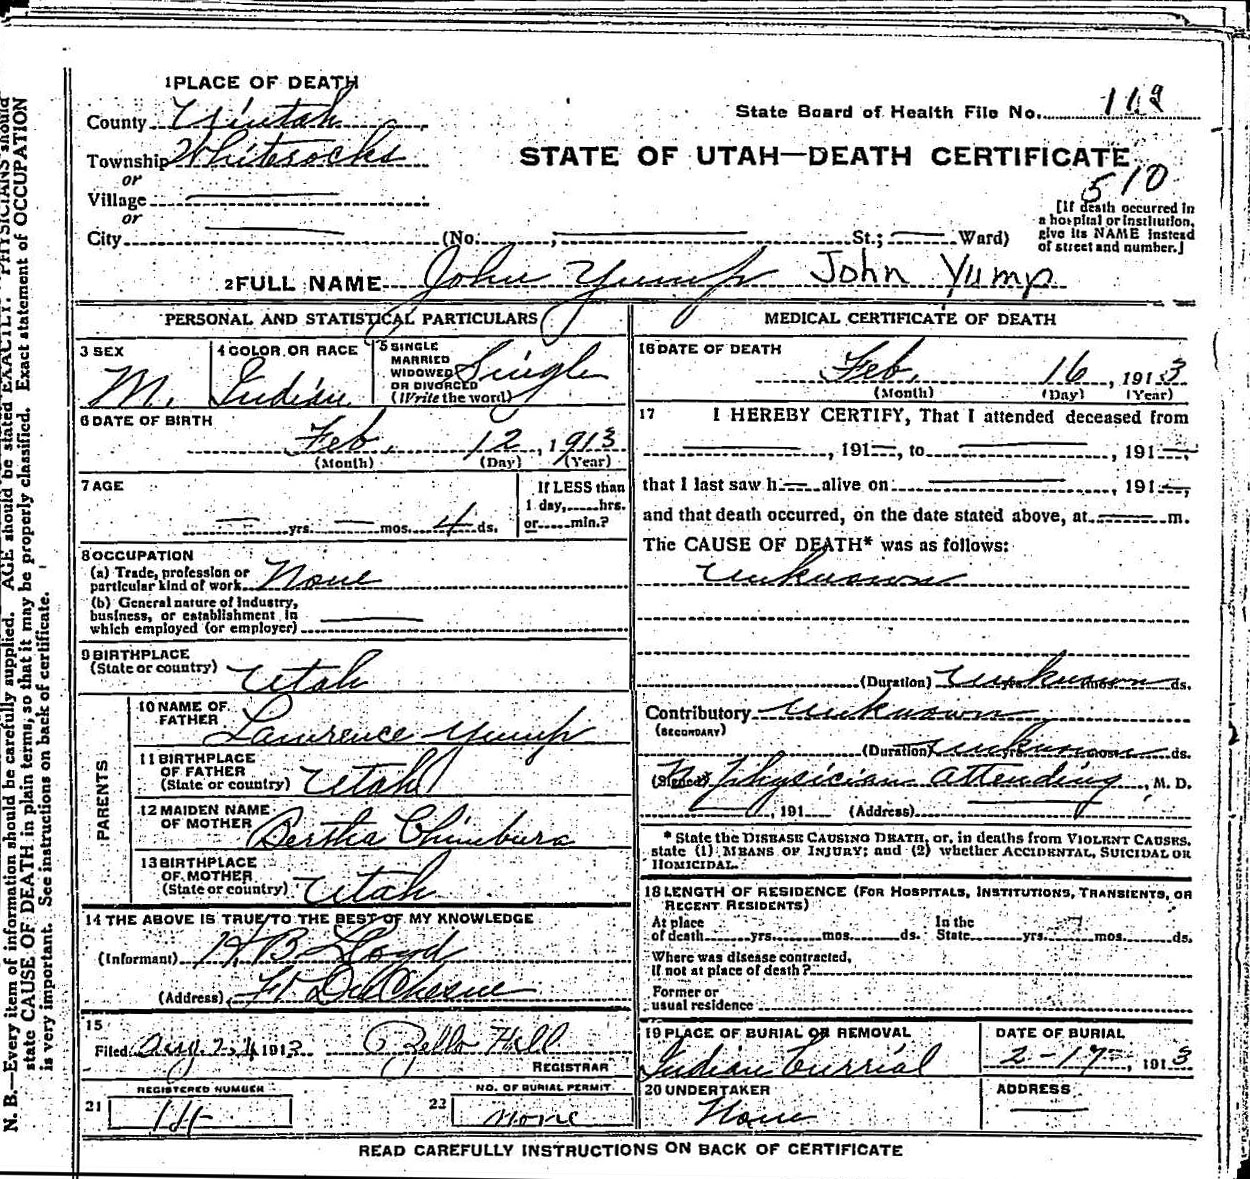 1 PLACE OF DEATH
County Uintah
State Board of Health File No. 112
Township Whiterocks
STATE OF UTAH—DEATH CERTIFICATE
510
or
Village
or
City (No. , St.; Ward)
[If death occurred in
a hospital or institution,
give its NAME instead
of street and number.]
2 FULL NAME John Yump John Yump
PERSONAL AND STATISTICAL PARTICULARS
3 SEX
M.
4 COLOR OR RACE
Indian
5 SINGLE
MARRIED
WIDOWED
OR DIVORCED
(Write the word)
Single
6 DATE OF BIRTH
Feb. 12, 1913
(Month) (Day) (Year)
7 AGE
— yrs. — mos. 4 ds.
If LESS than
1 day, hrs.
or min.?
8 OCCUPATION
(a) Trade, profession or
particular kind of work None
(b) General nature of industry,
business, or establishment in
which employed (or employer)
9 BIRTHPLACE
(State or country) Utah
PARENTS
10 NAME OF
FATHER Lawrence Yump
11 BIRTHPLACE
OF FATHER
(State or country) Utah
12 MAIDEN NAME
OF MOTHER Bertha Chimbura
13 BIRTHPLACE
OF MOTHER
(State or country) Utah
14 THE ABOVE IS TRUE TO THE BEST OF MY KNOWLEDGE
(Informant) H B Lloyd
(Address) Ft DuChesne
15
Filed Aug. 25, 1913 Hall
REGISTRAR
REGISTERED NUMBER
21 14
NO. OF BURIAL PERMIT
22 none
MEDICAL CERTIFICATE OF DEATH
16 DATE OF DEATH
Feb. 16, 1913
(Month) (Day) (Year)
17 I HEREBY CERTIFY, That I attended deceased from
—, 191—, to —, 191—,
that I last saw h— alive on —, 191—,
and that death occurred, on the date stated above, at — m.
The CAUSE OF DEATH* was as follows:
Unknown
(Duration) unknown yrs. mos. ds.
Contributory unknown
(SECONDARY)
(Duration) unknown yrs. mos. ds.
(Signed) No physician attending, M. D.
, 191 (Address)
* State the DISEASE CAUSING DEATH, or, in deaths from VIOLENT CAUSES,
state (1) MEANS OF INJURY; and (2) whether ACCIDENTAL, SUICIDAL OR
HOMICIDAL.
18 LENGTH OF RESIDENCE (FOR HOSPITALS, INSTITUTIONS, TRANSIENTS, OR
RECENT RESIDENTS)
At place In the
of death yrs. mos. ds. State yrs. mos. ds.
Where was disease contracted,
if not at place of death?
Former or
usual residence
19 PLACE OF BURIAL OR REMOVAL
Indian burrial
DATE OF BURIAL
2-17-, 1913
20 UNDERTAKER
None
ADDRESS
READ CAREFULLY INSTRUCTIONS ON BACK OF CERTIFICATE
N. B.—Every item of information should be carefully supplied. AGE should be stated EXACTLY. PHYSICIANS should
state CAUSE OF DEATH in plain terms, so that it may be properly classified. Exact statement of OCCUPATION
is very important. See instructions on back of certificate.